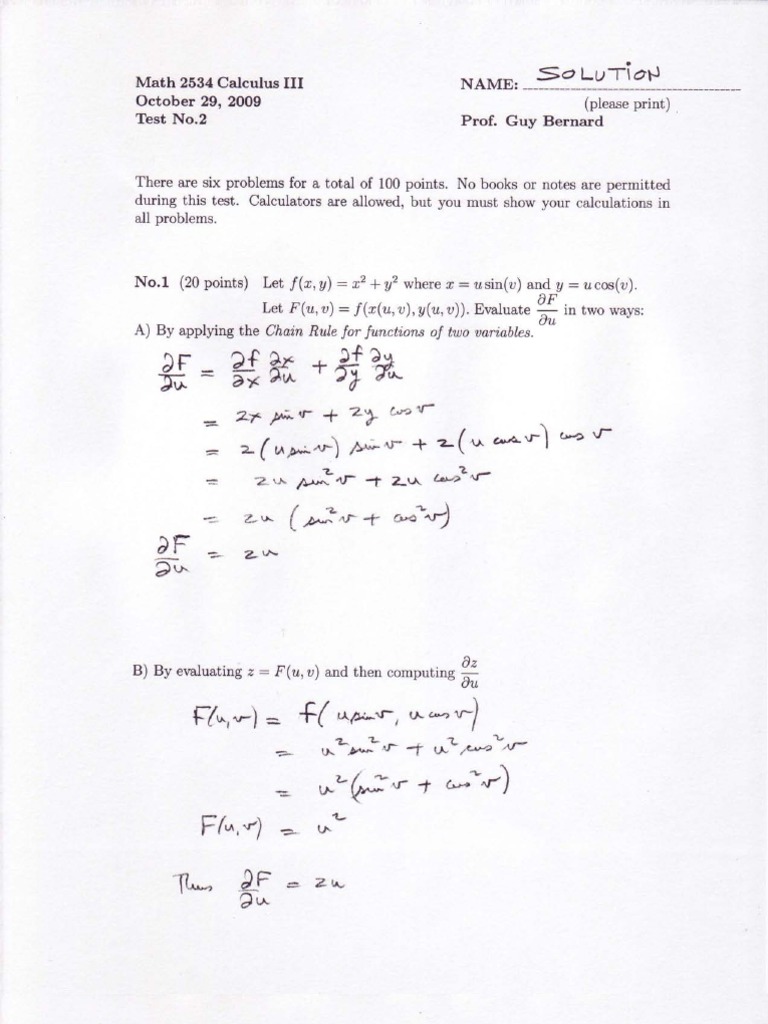 Math 2534 Calculus III
October 29, 2009
Test No.2
NAME: SOLUTION
(please print)
Prof. Guy Bernard
There are six problems for a total of 100 points. No books or notes are permitted
during this test. Calculators are allowed, but you must show your calculations in
all problems.
No.1 (20 points) Let f(x, y) = x² + y² where x = u sin(v) and y = u cos(v).
Let F(u, v) = f(x(u, v), y(u, v)). Evaluate ∂F/∂u in two ways:
A) By applying the Chain Rule for functions of two variables.
∂F/∂u = ∂f/∂x ∂x/∂u + ∂f/∂y ∂y/∂u
= 2x sin v + 2y cos v
= 2(u sin v) sin v + 2(u cos v) cos v
= 2u sin² v + 2u cos² v
= 2u (sin² v + cos² v)
∂F/∂u = 2u
B) By evaluating z = F(u, v) and then computing ∂z/∂u
F(u, v) = f(u sin v, u cos v)
= u² sin² v + u² cos² v
= u² (sin² v + cos² v)
F(u, v) = u²
Thus ∂F/∂u = 2u